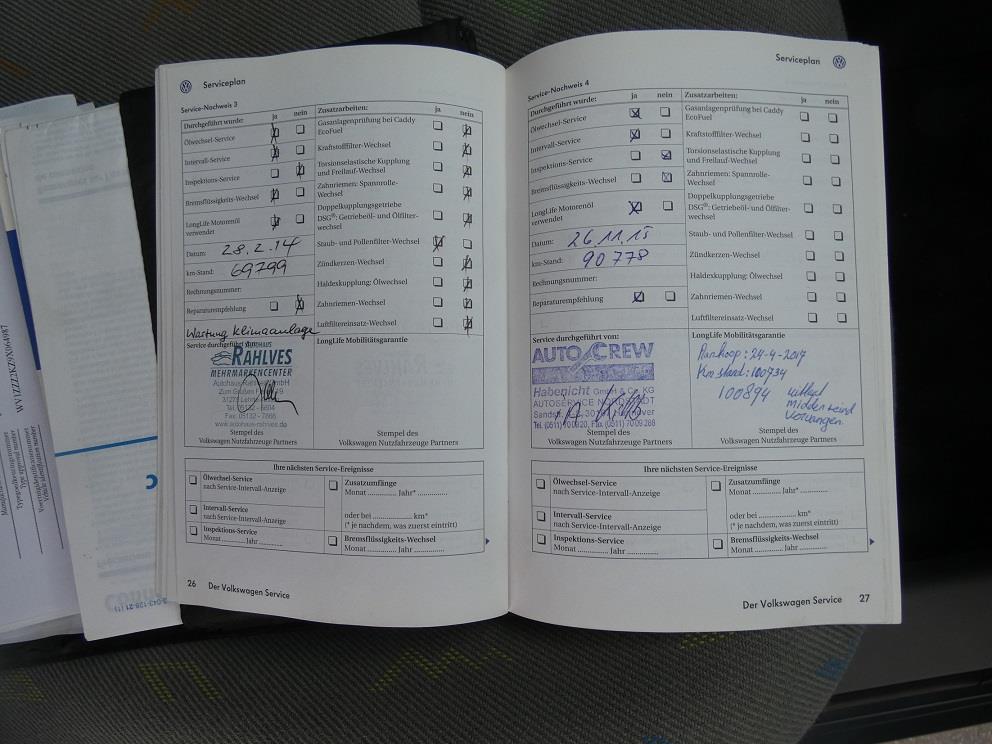 Serviceplan
Service-Nachweis 3
Durchgeführt wurde: ja nein
Ölwechsel-Service
Intervall-Service
Inspektions-Service
Bremsflüssigkeits-Wechsel
LongLife Motorenöl
verwendet
Datum: 28.2.14
km-Stand: 69799
Rechnungsnummer:
Reparaturempfehlung
Wartung Klimaanlage
Zusatzarbeiten: ja nein
Gasanlagenprüfung bei Caddy
EcoFuel
Kraftstofffilter-Wechsel
Torsionselastische Kupplung
und Freilauf-Wechsel
Zahnriemen: Spannrolle-
Wechsel
Doppelkupplungsgetriebe
DSG®: Getriebeöl- und Ölfilter-
wechsel
Staub- und Pollenfilter-Wechsel
Zündkerzen-Wechsel
Haldexkupplung: Ölwechsel
Zahnriemen-Wechsel
Luftfiltereinsatz-Wechsel
Service durchgeführt
AUTOHAUS
RAHLVES
MEHRMARKENCENTER
Autohaus Rahlves GmbH
Zum Großen
31275 Lehrte
Tel. 05132
Fax: 05132 - 7866
www.autohaus-rahlves.de
Stempel des
Volkswagen Nutzfahrzeuge Partners
LongLife Mobilitätsgarantie
Stempel des
Volkswagen Nutzfahrzeuge Partners
Ihre nächsten Service-Ereignisse
Ölwechsel-Service
nach Service-Intervall-Anzeige
Intervall-Service
nach Service-Intervall-Anzeige
Inspektions-Service
Monat ............ Jahr ............
Zusatzumfänge
Monat ............ Jahr* ............
oder bei .................... km*
(* je nachdem, was zuerst eintritt)
Bremsflüssigkeits-Wechsel
Monat ............ Jahr ............
26 Der Volkswagen Service
Serviceplan
Service-Nachweis 4
Durchgeführt wurde: ja nein
Ölwechsel-Service
Intervall-Service
Inspektions-Service
Bremsflüssigkeits-Wechsel
LongLife Motorenöl
verwendet
Datum: 26.11.15
km-Stand: 90 778
Rechnungsnummer:
Reparaturempfehlung
Zusatzarbeiten: ja nein
Gasanlagenprüfung bei Caddy
EcoFuel
Kraftstofffilter-Wechsel
Torsionselastische Kupplung
und Freilauf-Wechsel
Zahnriemen: Spannrolle-
Wechsel
Doppelkupplungsgetriebe
DSG®: Getriebeöl- und Ölfilter-
wechsel
Staub- und Pollenfilter-Wechsel
Zündkerzen-Wechsel
Haldexkupplung: Ölwechsel
Zahnriemen-Wechsel
Luftfiltereinsatz-Wechsel
Service durchgeführt von:
AUTO CREW
Habenicht GmbH & Co. KG
AUTOSERVICE NORDSTADT
Tel. (0511) Fax. (0511) 7009 288
Stempel des
Volkswagen Nutzfahrzeuge Partners
LongLife Mobilitätsgarantie
Aankoop: 24-4-2017
Km stand: 100734
100894
Stempel des
Volkswagen Nutzfahrzeuge Partners
Ihre nächsten Service-Ereignisse
Ölwechsel-Service
nach Service-Intervall-Anzeige
Intervall-Service
nach Service-Intervall-Anzeige
Inspektions-Service
Monat ............ Jahr ............
Zusatzumfänge
Monat ............ Jahr* ............
oder bei .................... km*
(* je nachdem, was zuerst eintritt)
Bremsflüssigkeits-Wechsel
Monat ............ Jahr ............
Der Volkswagen Service 27